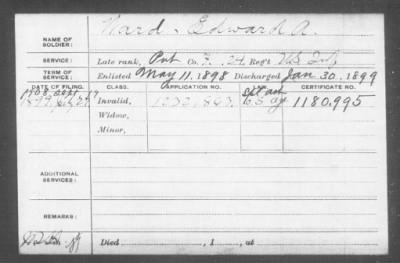 Ward, Edward A.
NAME OF SOLDIER:
SERVICE: Late rank, Pvt Co. F. 24 Reg't U.S. Inf
TERM OF SERVICE: Enlisted May 11. 1898 Discharged Jan 30. 1899
DATE OF FILING. CLASS. APPLICATION NO. CERTIFICATE NO.
1908 Sept
1899 Invalid, 1180.995
Widow,
Minor,
ADDITIONAL SERVICES:
REMARKS:
Died , 1 , at